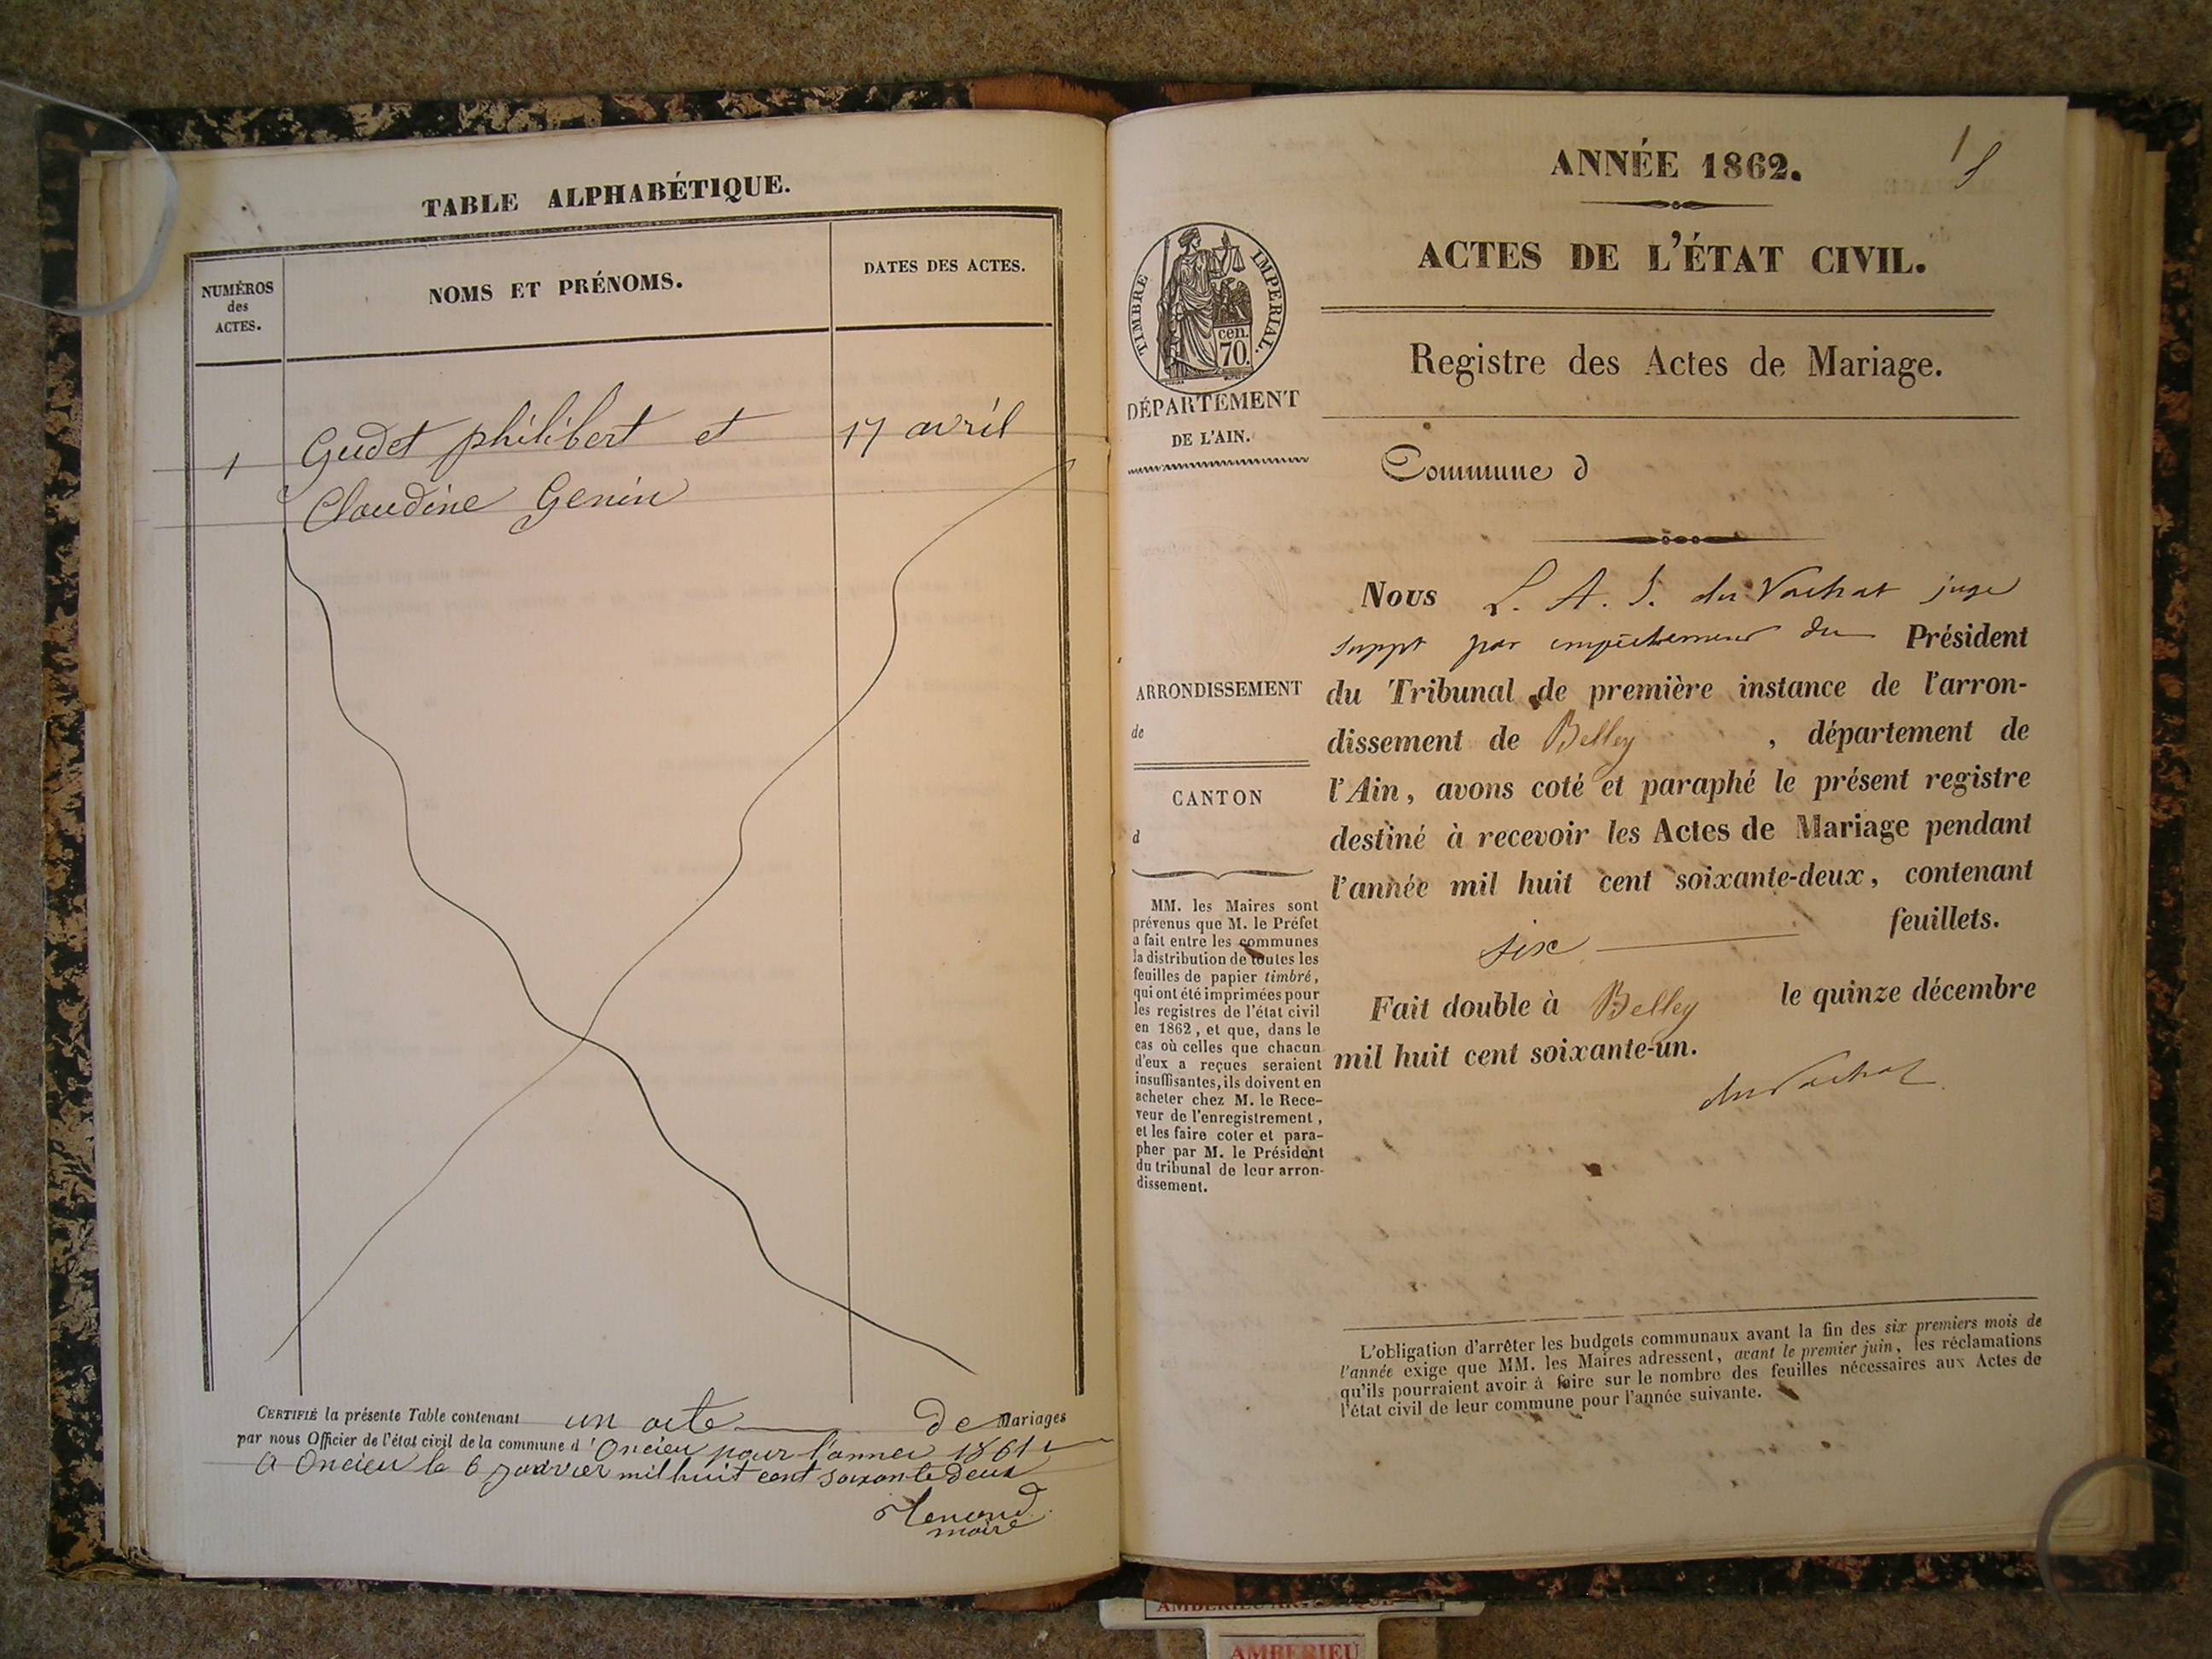 TABLE ALPHABÉTIQUE.
NUMÉROS
des
ACTES.
NOMS ET PRÉNOMS.
DATES DES ACTES.
1 Gudet philibert et 17 avril
Claudine Genin
CERTIFIÉ la présente Table contenant un acte de Mariages
par nous Officier de l'état civil de la commune d'Oncieu pour l'année 1861
a Oncieu le 6 janvier mil huit cent soixante deux
maire
1
ANNÉE 1862.
ACTES DE L'ÉTAT CIVIL.
Registre des Actes de Mariage.
TIMBRE IMPERIAL.
cen.
70.
DÉPARTEMENT
DE L'AIN.
Commune d
ARRONDISSEMENT
de
CANTON
d
MM. les Maires sont
prévenus que M. le Préfet
a fait entre les communes
la distribution de toutes les
feuilles de papier timbré,
qui ont été imprimées pour
les registres de l'état civil
en 1862, et que, dans le
cas où celles que chacun
d'eux a reçues seraient
insuffisantes, ils doivent en
acheter chez M. le Rece-
veur de l'enregistrement,
et les faire coter et para-
pher par M. le Président
du tribunal de leur arron-
dissement.
Nous L. A. J. du Vachat juge
suppt par empêchement du Président
du Tribunal de première instance de l'arron-
dissement de Belley, département de
l'Ain, avons coté et paraphé le présent registre
destiné à recevoir les Actes de Mariage pendant
l'année mil huit cent soixante-deux, contenant
six feuillets.
Fait double à Belley le quinze décembre
mil huit cent soixante-un.
du Vachat
L'obligation d'arrêter les budgets communaux avant la fin des six premiers mois de
l'année exige que MM. les Maires adressent, avant le premier juin, les réclamations
qu'ils pourraient avoir à faire sur le nombre des feuilles nécessaires aux Actes de
l'état civil de leur commune pour l'année suivante.
AMBERIEU